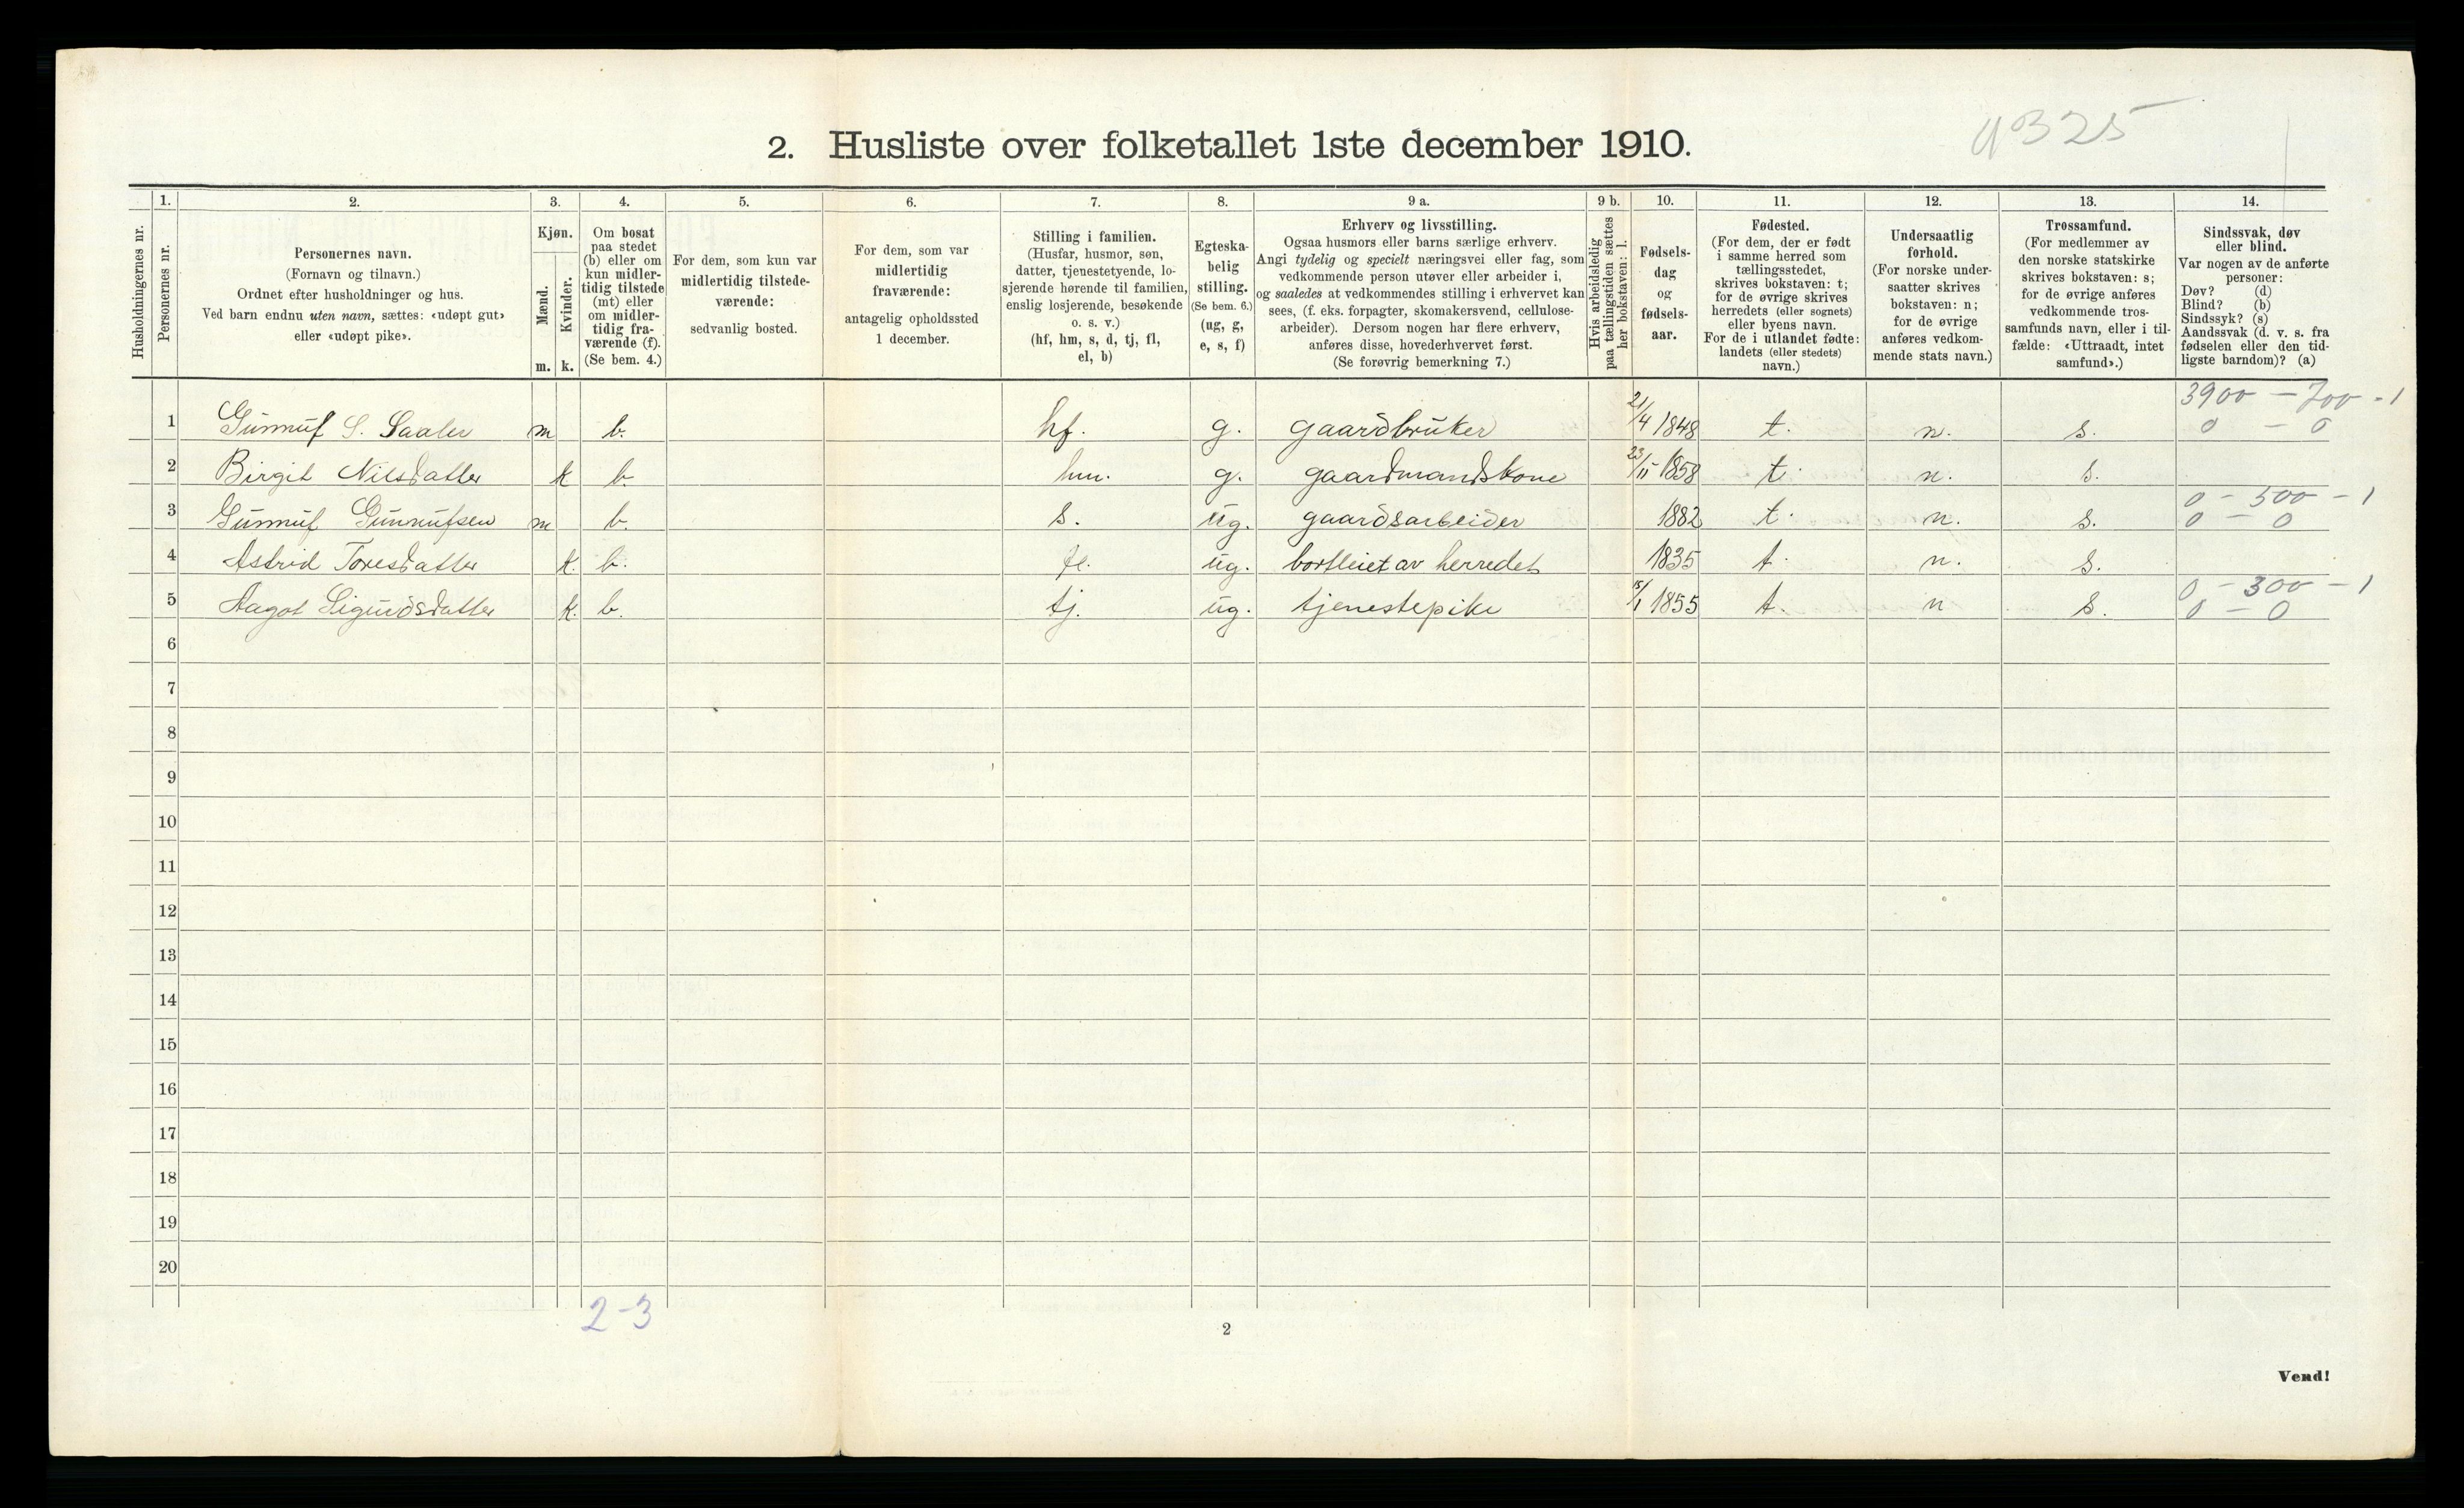 2. Husliste over folketallet 1ste december 1910.
4325
Husholdningernes nr.
1.
Personernes nr.
2.
Personernes navn.
(Fornavn og tilnavn.)
Ordnet efter husholdninger og hus.
Ved barn endnu uten navn, sættes: «udøpt gut»
eller «udøpt pike».
3.
Kjøn.
Mænd.
Kvinder.
m. k.
4.
Om bosat
paa stedet
(b) eller om
kun midler-
tidig tilstede
(mt) eller
om midler-
tidig fra-
værende (f).
(Se bem. 4.)
5.
For dem, som kun var
midlertidig tilstede-
værende:
sedvanlig bosted.
6.
For dem, som var
midlertidig
fraværende:
antagelig opholdssted
1 december.
7.
Stilling i familien.
(Husfar, husmor, søn,
datter, tjenestetyende, lo-
sjerende hørende til familien,
enslig losjerende, besøkende
o. s. v.)
(hf, hm, s, d, tj, fl,
el, b)
8.
Egteska-
belig
stilling.
(Se bem. 6.)
(ug, g,
e, s, f)
9 a.
Erhverv og livsstilling.
Ogsaa husmors eller barns særlige erhverv.
Angi tydelig og specielt næringsvei eller fag, som
vedkommende person utøver eller arbeider i,
og saaledes at vedkommendes stilling i erhvervet kan
sees, (f. eks. forpagter, skomakersvend, cellulose-
arbeider). Dersom nogen har flere erhverv,
anføres disse, hovederhvervet først.
(Se forøvrig bemerkning 7.)
9 b.
Hvis arbeidsledig
paa tællingstiden sættes
her bokstaven: l.
10.
Fødsels-
dag
og
fødsels-
aar.
11.
Fødested.
(For dem, der er født
i samme herred som
tællingsstedet,
skrives bokstaven: t;
for de øvrige skrives
herredets (eller sognets)
eller byens navn.
For de i utlandet fødte:
landets (eller stedets)
navn.)
12.
Undersaatlig
forhold.
(For norske under-
saatter skrives
bokstaven: n;
for de øvrige
anføres vedkom-
mende stats navn.)
13.
Trossamfund.
(For medlemmer av
den norske statskirke
skrives bokstaven: s;
for de øvrige anføres
vedkommende tros-
samfunds navn, eller i til-
fælde: «Uttraadt, intet
samfund».)
14.
Sindssvak, døv
eller blind.
Var nogen av de anførte
personer:
Døv? (d)
Blind? (b)
Sindssyk? (s)
Aandssvak (d. v. s. fra
fødselen eller den tid-
ligste barndom)? (a)
3900 - 700 - 1
1 Gunnuf S. Saaler m b. hf. g. gaardbruker 21/4 1848 t. n. s. 0 - 0
2 Birgit Nilsdatter k b. hm. g. gaardmandskone 23/11 1858 t. n. s.
0 - 500 - 1
3 Gunnuf Gunnufsen m b. s. ug. gaardsarbeider 1882 t. n. s. 0 - 0
4 Astrid Toresdatter k. b. fl. ug. bortleiet av herredet 1835 t. n. s.
0 - 300 - 1
5 Aagot Sigurdsdatter k. b. tj. ug. tjenestepike 15/1 1855 t. n s. 0 - 0
6
7
8
9
10
11
12
13
14
15
16
17
18
19
20
2-3
2
Vend!